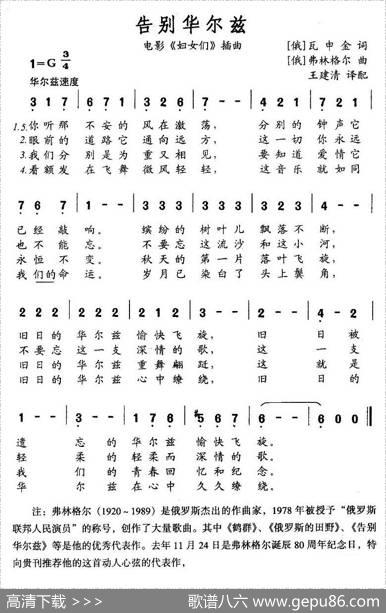 告别华尔兹
电影《妇女们》插曲
[俄]瓦申金 词
[俄]弗林格尔 曲
王建清 译配
1=G 3/4
华尔兹速度
3 1 7 6 7 1 3 2 2 2 - - 4 2 1 7 2 1
1.5.你听那 不安的 风在激 荡, 分别的 钟声它
2.眼前的 道路它 通向远 方, 这一切 你永远
3.我们分 别是为 重又相 见, 要知道 爱情它
4.看额发 在飞舞 微风轻 轻, 这音乐 就如同
7 6 7 1 - - 3 3 3 3 3 3 4 3 3 3 - -
已经 敲响。 缤纷的 树叶儿 飘落不 断,
也不能 忘。 不要忘 这流沙 和这小 河,
永恒不 变。 秋天的 第一片 落叶飞 旋,
我们的命 运。 岁月已 染白了 头上鬓 角,
2 2 2 2 2 2 3 2 2 2 - - 2 - 2
旧日的 华尔兹 愉快飞 旋, 旧 日被
不要忘 这一支 深情的 歌, 这 一支
旧日的 华尔兹 重舞翩 跹, 这 就是
旧日的 华尔兹 心中缭 绕, 旧 日的
1 - - 3 - - 1 7 6 #5 6 7 6 - - 6 0 0
遗 忘的 华尔兹 愉快飞 旋。
轻 柔的 轻柔而 深情的 歌。
我 们的 青春回 忆和纪 念。
华 尔兹 在心中 久久缭 绕。
注:弗林格尔(1920~1989)是俄罗斯杰出的作曲家,1978年被授予“俄罗斯
联邦人民演员”的称号,创作了大量歌曲。其中《鹤群》、《俄罗斯的田野》、《告别
华尔兹》等是他的优秀代表作。去年11月24日是弗林格尔诞辰80周年纪念日,特
向贵刊推荐他的这首动人心弦的代表作,
高清下载 > > > 歌谱八六 www.gepu86.com